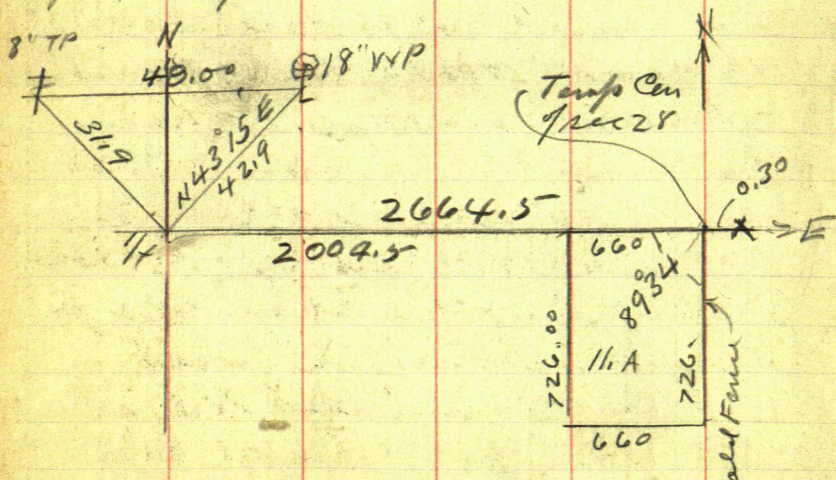 8" TP
N
49.00
18" WP
31.9
N43°15 E
42.9
Temp Cen
of sec 28
N
0.30
E
2664.5
1/4
2004.5
660
89°34
726.00
11.A
726.
660
old Fence